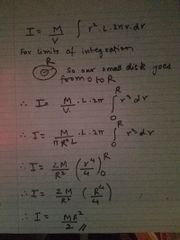 I = M/V ∫ r² L . 2πr . dr
For limits of integration
R So our small disk goes
from 0 to R
∴ I = M/V . L . 2π ∫₀ᴿ r³ dr
∴ I = M/πR²L . L . 2π ∫₀ᴿ r³ dr
∴ I = 2M/R² (r⁴/4)₀ᴿ
∴ I = 2M/R² (R⁴/4)
∴ I = MR²/2 //